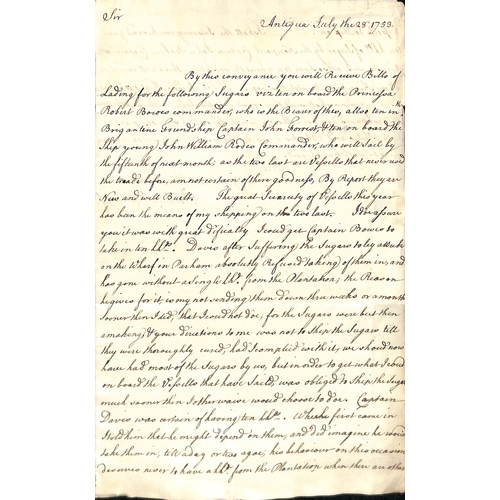 Sir
Antigua July the 28th 1753
By this conveyance you will Receive Bills of
Lading for the following Sugars viz ten on board the Princessa
Robert Bowes commander, who is the Bearer of this, allso ten in the
Brigantine Friendship Captain John Forrest, & ten on board the
Ship young John William Rodeo Comander, who will Sail by
the fifteenth of next month; as the two last are Vessells that never used
the trade before, am not certain of there goodness, By Report they are
New and will Built. The great Scarcity of Vessells this year
has ben the means of my shipping on the two last. I do assure
you it was with great dificulty I coud get Captain Bowes to
take in ten hhds. Davis after Suffering the Sugars to ly
on the Wharf in Parham absolutly Refused taking of them in, and
has gone without a Single hhd. from the Plantation; the Reason
he gives for it, is my not sending them down three weeks or a month
sooner then I did, that I coud not doe, for the Sugars were but then
amaking, & your directions to me was not to Ship the Sugars till
they were thoroughly cured, had I complied with it, we should now
have had most of the Sugars by us, but in order to get what I coud
on board the Vessells that have Saild, was obliged to Ship the Sugars
much sooner then I otherwaise would choose to doe. Captain
Davis was certain of having ten hhds. When he first came in
I told him that he might depend on them, and did imagine he would
take them in, till a day or two agoe; his behaviour on this occasion
deserves never to have a hhd. from the Plantation when there are other